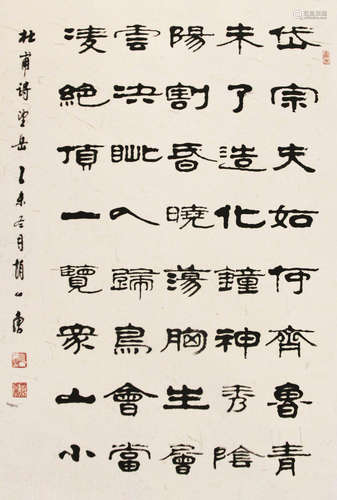 岱宗夫如何齊魯青
未了造化鐘神秀陰
陽割昏曉蕩胸生層
雲決眦入歸鳥會當
凌絕頂一覽眾山小
杜甫詩望岳 乙未冬月